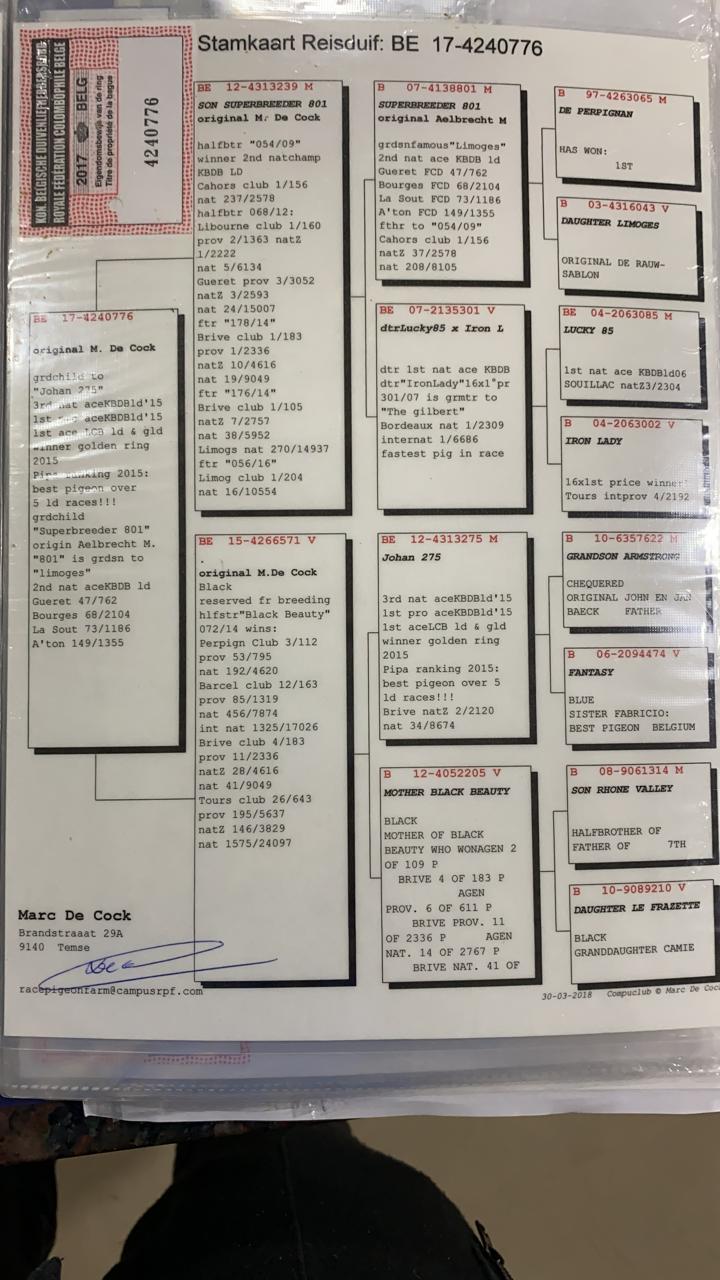 Stamkaart Reisduif: BE 17-4240776
KON. BELGISCHE DUIVENLIEFHEBBERSBOND
ROYALE FÉDÉRATION COLOMBOPHILE BELGE
2017 BELG
Eigendomsbewijs van de ring
Titre de propriété de la bague
4240776
BE 17-4240776
original M. De Cock
grdchild to
"Johan 275"
3rd nat aceKBDBld'15
1st aceKBDBld'15
1st ace LCB ld & gld
winner golden ring
2015
Pipa ranking 2015:
best pigeon over
5 ld races!!!
grdchild
"Superbreeder 801"
origin Aelbrecht M.
"801" is grdsn to
"limoges"
2nd nat aceKBDB ld
Gueret 47/762
Bourges 68/2104
La Sout 73/1186
A'ton 149/1355
BE 12-4313239 M
SON SUPERBREEDER 801
original M. De Cock
halfbtr "054/09"
winner 2nd natchamp
KBDB LD
Cahors club 1/156
nat 237/2578
halfbtr 068/12:
Libourne club 1/160
prov 2/1363 natZ
1/2222
nat 5/6134
Gueret prov 3/3052
natZ 3/2593
nat 24/15007
ftr "178/14"
Brive club 1/183
prov 1/2336
natZ 10/4616
nat 19/9049
ftr "176/14"
Brive club 1/105
natZ 7/2757
nat 38/5952
Limogs nat 270/14937
ftr "056/16"
Limog club 1/204
nat 16/10554
BE 15-4266571 V
.
original M.De Cock
Black
reserved fr breeding
hlfstr"Black Beauty"
072/14 wins:
Perpign Club 3/112
prov 53/795
nat 192/4620
Barcel club 12/163
prov 85/1319
nat 456/7874
int nat 1325/17026
Brive club 4/183
prov 11/2336
natZ 28/4616
nat 41/9049
Tours club 26/643
prov 195/5637
natZ 146/3829
nat 1575/24097
B 07-4138801 M
SUPERBREEDER 801
original Aelbrecht M
grdsnfamous"Limoges"
2nd nat ace KBDB ld
Gueret FCD 47/762
Bourges FCD 68/2104
La Sout FCD 73/1186
A'ton FCD 149/1355
fthr to "054/09"
Cahors club 1/156
natZ 37/2578
nat 208/8105
BE 07-2135301 V
dtrLucky85 x Iron L
dtr 1st nat ace KBDB
dtr"IronLady"16x1°pr
301/07 is grmtr to
"The gilbert"
Bordeaux nat 1/2309
internat 1/6686
fastest pig in race
BE 12-4313275 M
Johan 275
3rd nat aceKBDBld'15
1st pro aceKBDBld'15
1st aceLCB ld & gld
winner golden ring
2015
Pipa ranking 2015:
best pigeon over 5
ld races!!!
Brive natZ 2/2120
nat 34/8674
B 12-4052205 V
MOTHER BLACK BEAUTY
BLACK
MOTHER OF BLACK
BEAUTY WHO WONAGEN 2
OF 109 P
BRIVE 4 OF 183 P
AGEN
PROV. 6 OF 611 P
BRIVE PROV. 11
OF 2336 P AGEN
NAT. 14 OF 2767 P
BRIVE NAT. 41 OF
B 97-4263065 M
DE PERPIGNAN
HAS WON:
1ST
B 03-4316043 V
DAUGHTER LIMOGES
ORIGINAL DE RAUW-
SABLON
BE 04-2063085 M
LUCKY 85
1st nat ace KBDBld06
SOUILLAC natZ3/2304
B 04-2063002 V
IRON LADY
16x1st price winner
Tours intprov 4/2192
B 10-6357622 M
GRANDSON ARMSTRONG
CHEQUERED
ORIGINAL JOHN EN JAN
BAECK FATHER
B 06-2094474 V
FANTASY
BLUE
SISTER FABRICIO:
BEST PIGEON BELGIUM
B 08-9061314 M
SON RHONE VALLEY
HALFBROTHER OF
FATHER OF 7TH
B 10-9089210 V
DAUGHTER LE FRAZETTE
BLACK
GRANDDAUGHTER CAMIE
Marc De Cock
Brandstraaat 29A
9140 Temse
racepigeonfarm@campusrpf.com
30-03-2018 Compuclub © Marc De Coc